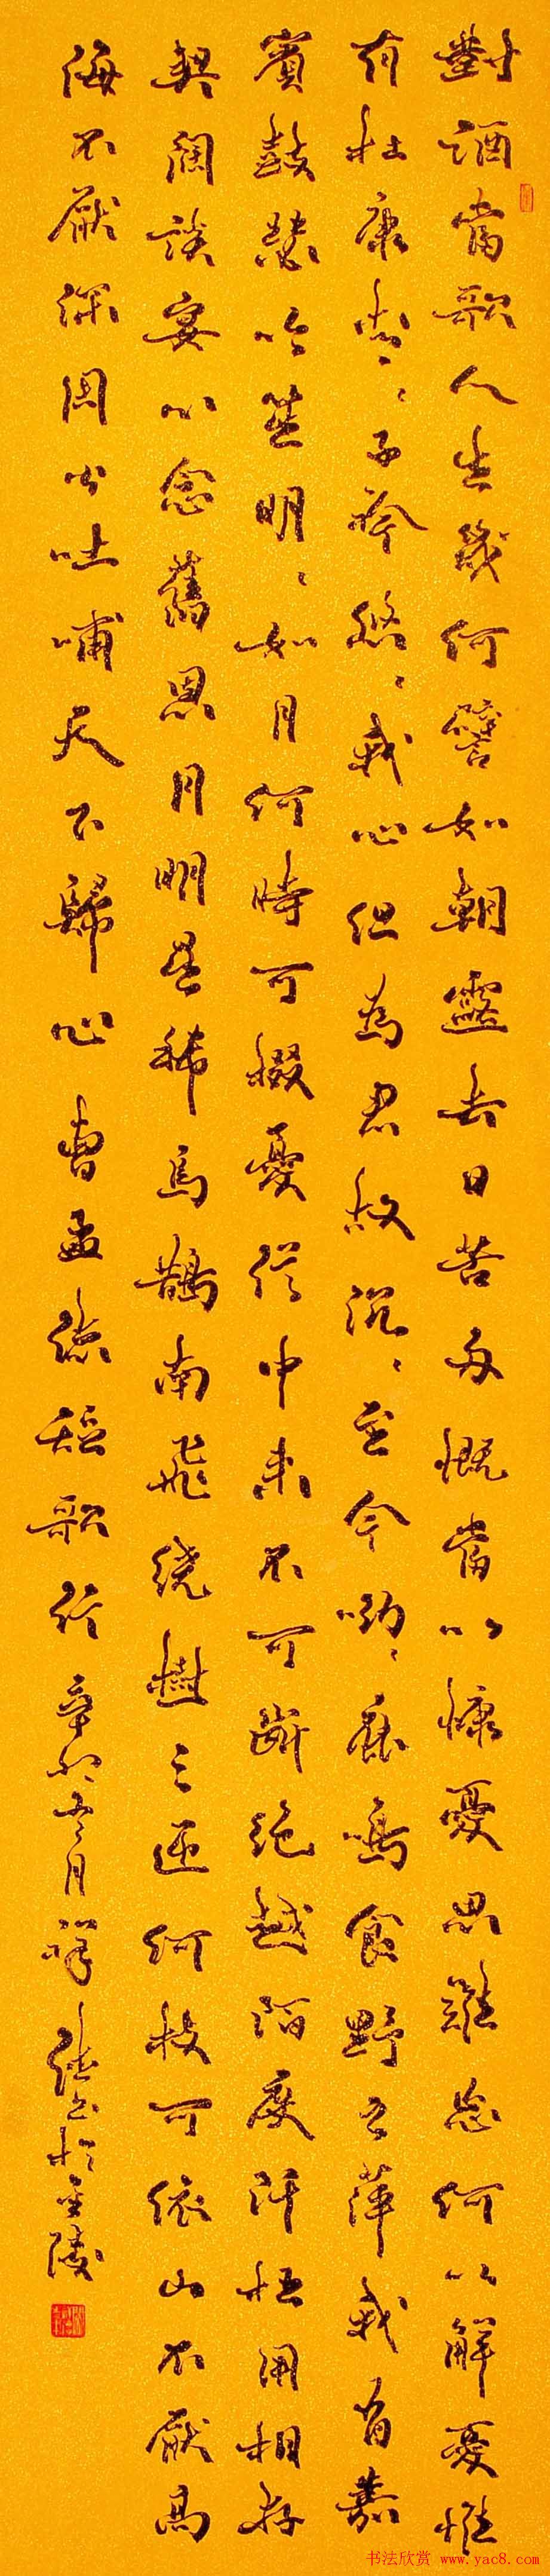 對酒當歌人生幾何譬如朝露去日苦多慨當以慷憂思難忘何以解憂惟
有杜康青〻子衿悠〻我心但為君故沉〻至今呦〻鹿鳴食野之萍我有嘉
賓鼓瑟吹笙明〻如月何時可掇憂從中來不可斷絕越陌度阡枉用相存
契闊談宴心念舊恩月明星稀烏鵲南飛繞樹三匝何枝可依山不厭高
海不厭深周公吐哺天下歸心曹孟德短歌行辛卯冬月祥書於金陵
书法欣赏 www.yac8.com